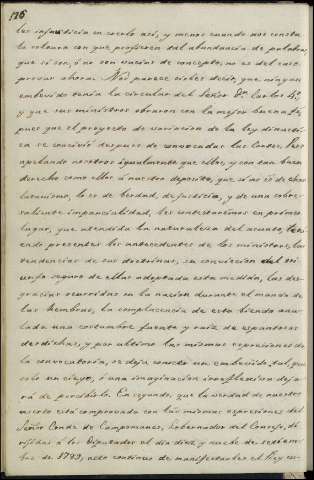 116
las infundiera en serlo así, y menos cuando nos consta
la soltura con que profieren tal abundancia de palabras,
que si son, ó no son vacias de concepto, no es del caso
probar ahora. Nos parece debes decir, que ningun
embebido tenia la circular del Señor Dn. Carlos 4º,
y que sus ministros obraron con la mejor buena fé,
pues que el proyecto de variacion de la ley dinasti-
ca se concivió despues de convocadas las Cortes. Pero
apelando nosotros igualmente que ellos, y con tan buen
derecho como ellos á nuestro deposito, que si no es de char-
latanismo, lo es de verdad, de justicia, y de una sobre-
saliente imparcialidad, les contestaremos en primer
lugar, que atendida la naturaleza del asunto, te-
niendo presentes los antecedentes de los ministros, las
tendencias de sus doctrinas, su conviccion del tri-
unfo seguro de ellas adoptada esta medida, las des-
gracias ocurridas en la nacion durante el mando de
las hembras, la complacencia de esta viendo anu-
lada una costumbre fuente y raiz de espantosas
desdichas, y por ultimo las mismas expresiones de
la convocatoria, se deja conocer un embebido tal que
solo un ciego, ó una imaginacion irreflexiva deja-
rá de percibirlo. En segundo, que la verdad de nuestro
aserto está comprovada con las mismas expresiones del
Señor Conde de Campomanes, Gobernador del Consejo, di-
rijidas á los Diputados el dia diez y nueve de setiem-
bre de 1789, acto continuo de manifestarles el Rey su